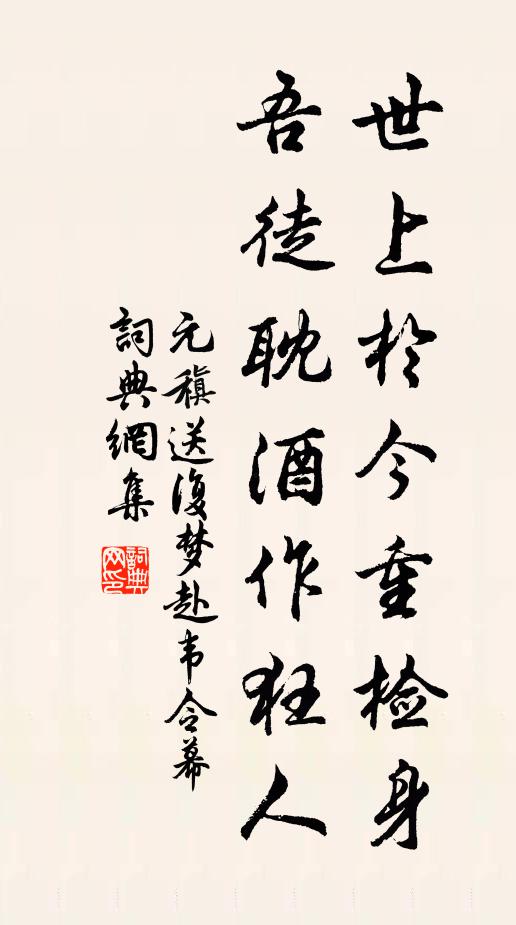 世上於今重检身
吾徒耽酒作狂人
元稹送復梦赴韦令幕
詞典網集
詞典网印